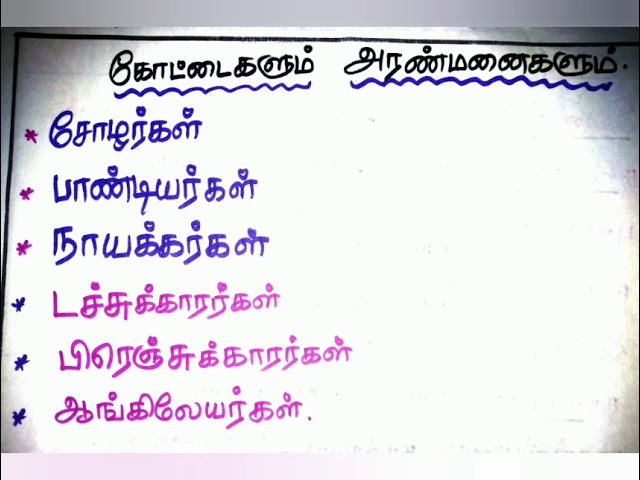 கோட்டைகளும் அரண்மனைகளும்.
* சோழர்கள்
* பாண்டியர்கள்
* நாயக்கர்கள்
* டச்சுக்காரர்கள்
* பிரெஞ்சுக்காரர்கள்
* ஆங்கிலேயர்கள்.